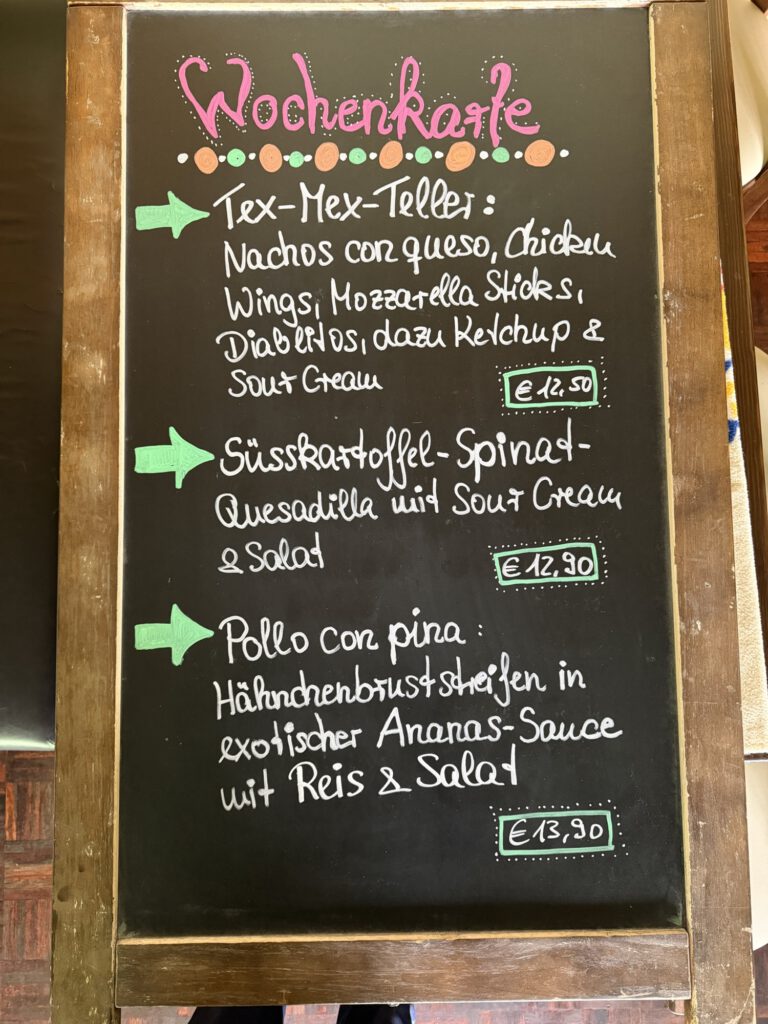 Wochenkarte
Tex-Mex-Teller:
Nachos con queso, Chicken
Wings, Mozzarella Sticks,
Diablitos, dazu Ketchup &
Sour Cream
€ 12,50
Süsskartoffel-Spinat-
Quesadilla mit Sour Cream
& Salat
€ 12,90
Pollo con pina:
Hähnchenbruststreifen in
exotischer Ananas-Sauce
mit Reis & Salat
€ 13,90